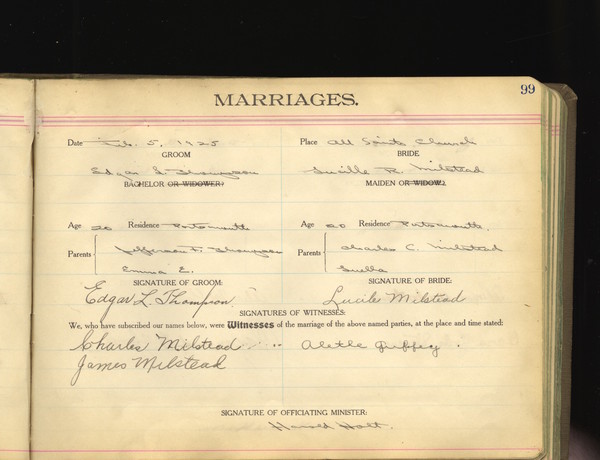 99
MARRIAGES.
Date Feb. 5, 1925 Place All Saints Church
GROOM BRIDE
Edgar L. Thompson Lucille R. Milstead
BACHELOR OR WIDOWER: MAIDEN OR WIDOW:
Age 20 Residence Portsmouth Age 20 Residence Portsmouth.
Parents Jefferson F. Thompson Parents Charles C. Milstead
Emma E. Luella
SIGNATURE OF GROOM: SIGNATURE OF BRIDE:
Edgar L. Thompson. Lucile Milstead
SIGNATURES OF WITNESSES:
We, who have subscribed our names below, were Witnesses of the marriage of the above named parties, at the place and time stated:
Charles Milstead Guffey
James Milstead
SIGNATURE OF OFFICIATING MINISTER:
Harold Holt.